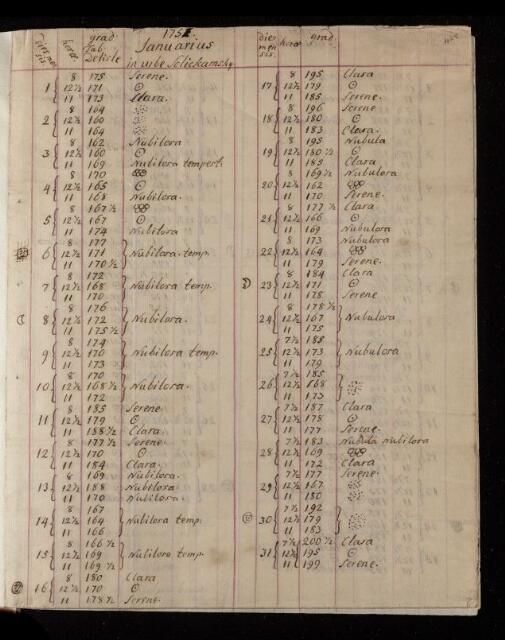 1751.
Januarius
in urbe Selickamsky
dies men
sis.
horæ
grad
Tab.
Delisle
1 8 175 Serene.
12½ 171 ⊙
11 173 Clara.
8 164
2 12½ 160
11 164
8 162 Nubilora
3 12½ 160 ⊙
11 169 Nubilora tempert.
8 170
4 12½ 165 ⊙
11 168 Nubilora.
8 167½
5 12½ 167 ⊙
11 174 Nubilora
8 177
6 12½ 171 Nubilora. temp.
11 170½
8 172
7 12½ 168 Nubilora temp.
11 170
8 176
☾ 8 12½ 172 Nubilora.
11 175½
8 174
9 12½ 170 Nubilora temp.
11 173
8 170
10 12½ 168½ Nubilora.
11 172
8 185 Serene
11 12½ 179 ⊙
11 188½ Clara
8 177½ Serene.
12 12½ 170 ⊙
11 184 Clara.
8 169 Nubilora.
13 12½ 188 Nubilora
11 170 Nubilora.
8 167
14 12½ 164 Nubilora temp.
11 166
8 166½
15 12½ 169 Nubilora temp.
11 169½
8 180 Clara
16 12½ 170 ⊙
11 178½ Serene.
dies
men
sis.
horæ
grad.
8 195 Clara
17 12½ 179 ⊙
11 185 Serene.
8 196 Serene
18 12½ 180 ⊙
11 183 Clara.
8 195 Nubula
19 12½ 180½ ⊙
11 185 Clara
8 169½ Nubulora
20 12½ 162
11 170 Serene.
8 177½ Clara
21 12½ 166 ⊙
11 169 Nubulora
8 173 Nubulora
22 12½ 164
11 179 Serene.
8 184 Clara
☽ 23 12½ 171 ⊙
11 178 Serene
8 178½
24 12½ 167 Nubulora
11 175
7½ 185
25 12½ 173 Nubulora
11 179
7½ 185
26 12½ 168
11 173
7½ 187 Clara
27 12½ 178 ⊙
11 177 Serene.
7½ 183 Nubula Nubilora
28 12½ 169
11 172 Clara
7½ 177 Serene.
29 12½ 167
11 180
7½ 192
30 12½ 179
11 183
7½ 200½ Clara
31 12½ 195 ⊙
11 199 Serene.